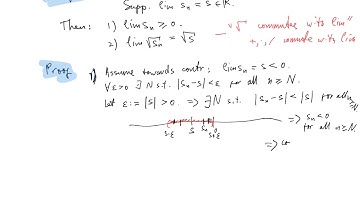 Supp. lim sₙ = s ∈ ℝ.
Then: 1) lim sₙ ≥ 0.
2) lim √sₙ = √s — "√ commutes with lim"
+, ·, / commute with lim
Proof 1) Assume towards contr: lim sₙ = s < 0.
∀ε>0 ∃ N s.t. |sₙ - s| < ε for all n ≥ N.
Let ε := |s| > 0. => ∃ N s.t. |sₙ - s| < |s| for all n ≥ N
=> sₙ < 0
for all n ≥ N.
s-ε s sₙ 0
s+ε
=>